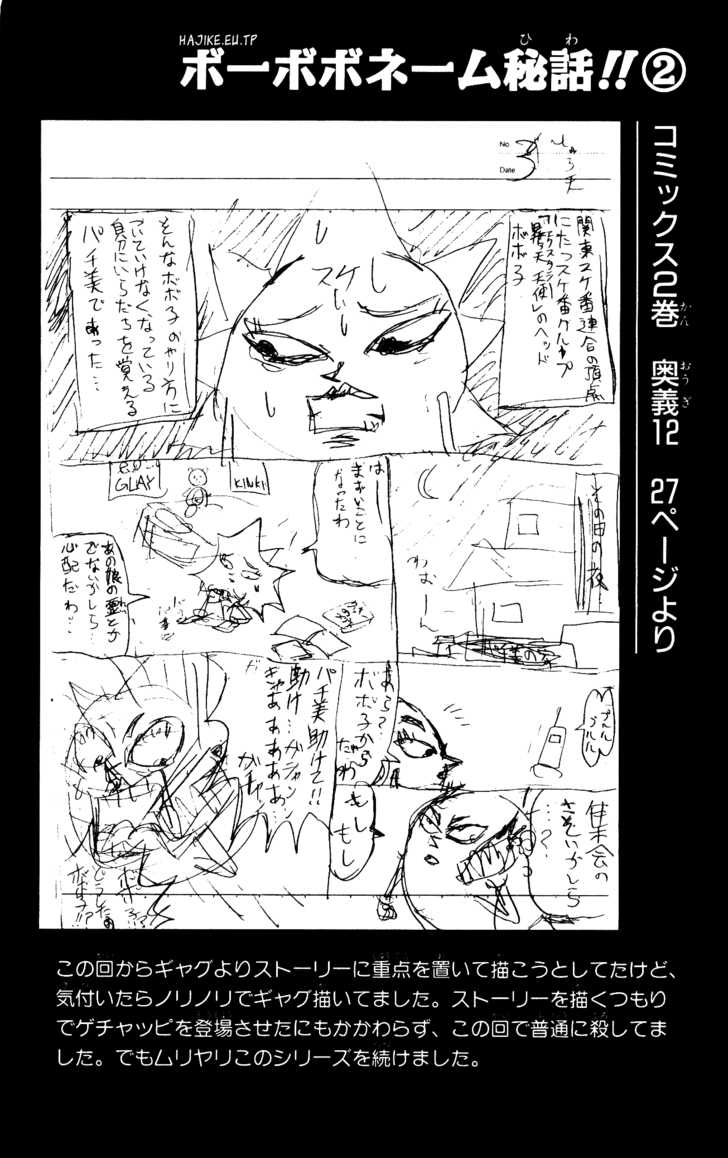 HAJIKE.EU.TP
ボーボボネーム秘話!!②
ひ わ
コミックス2巻 奥義12 27ページより
かん おう ぎ
No
Date
3
関東スケ番連合の頂点
にたつスケ番グループ
天使レのヘッド
ボボ子
スケ
そんなボボ子のやり方に
ついていけなくなっている
自分にいらだちを覚える
パチ美であった…
その日の夜
わおーん
はー
まずいことに
なったわ
GLAY
KINKI
あの娘の霊とか
でないかしら…
心配だわ…
プルル
プルル
あらっ
ボボ子から
だわ
集会の
さそいかしら
…?
もし
もし
パチ美助けて!!
助け…ガチャン
ギャあああああ
ガチャ
どうしたの
ボボ子!?
この回からギャグよりストーリーに重点を置いて描こうとしてたけど、
気付いたらノリノリでギャグ描いてました。ストーリーを描くつもり
でゲチャッピを登場させたにもかかわらず、この回で普通に殺してま
した。でもムリヤリこのシリーズを続けました。